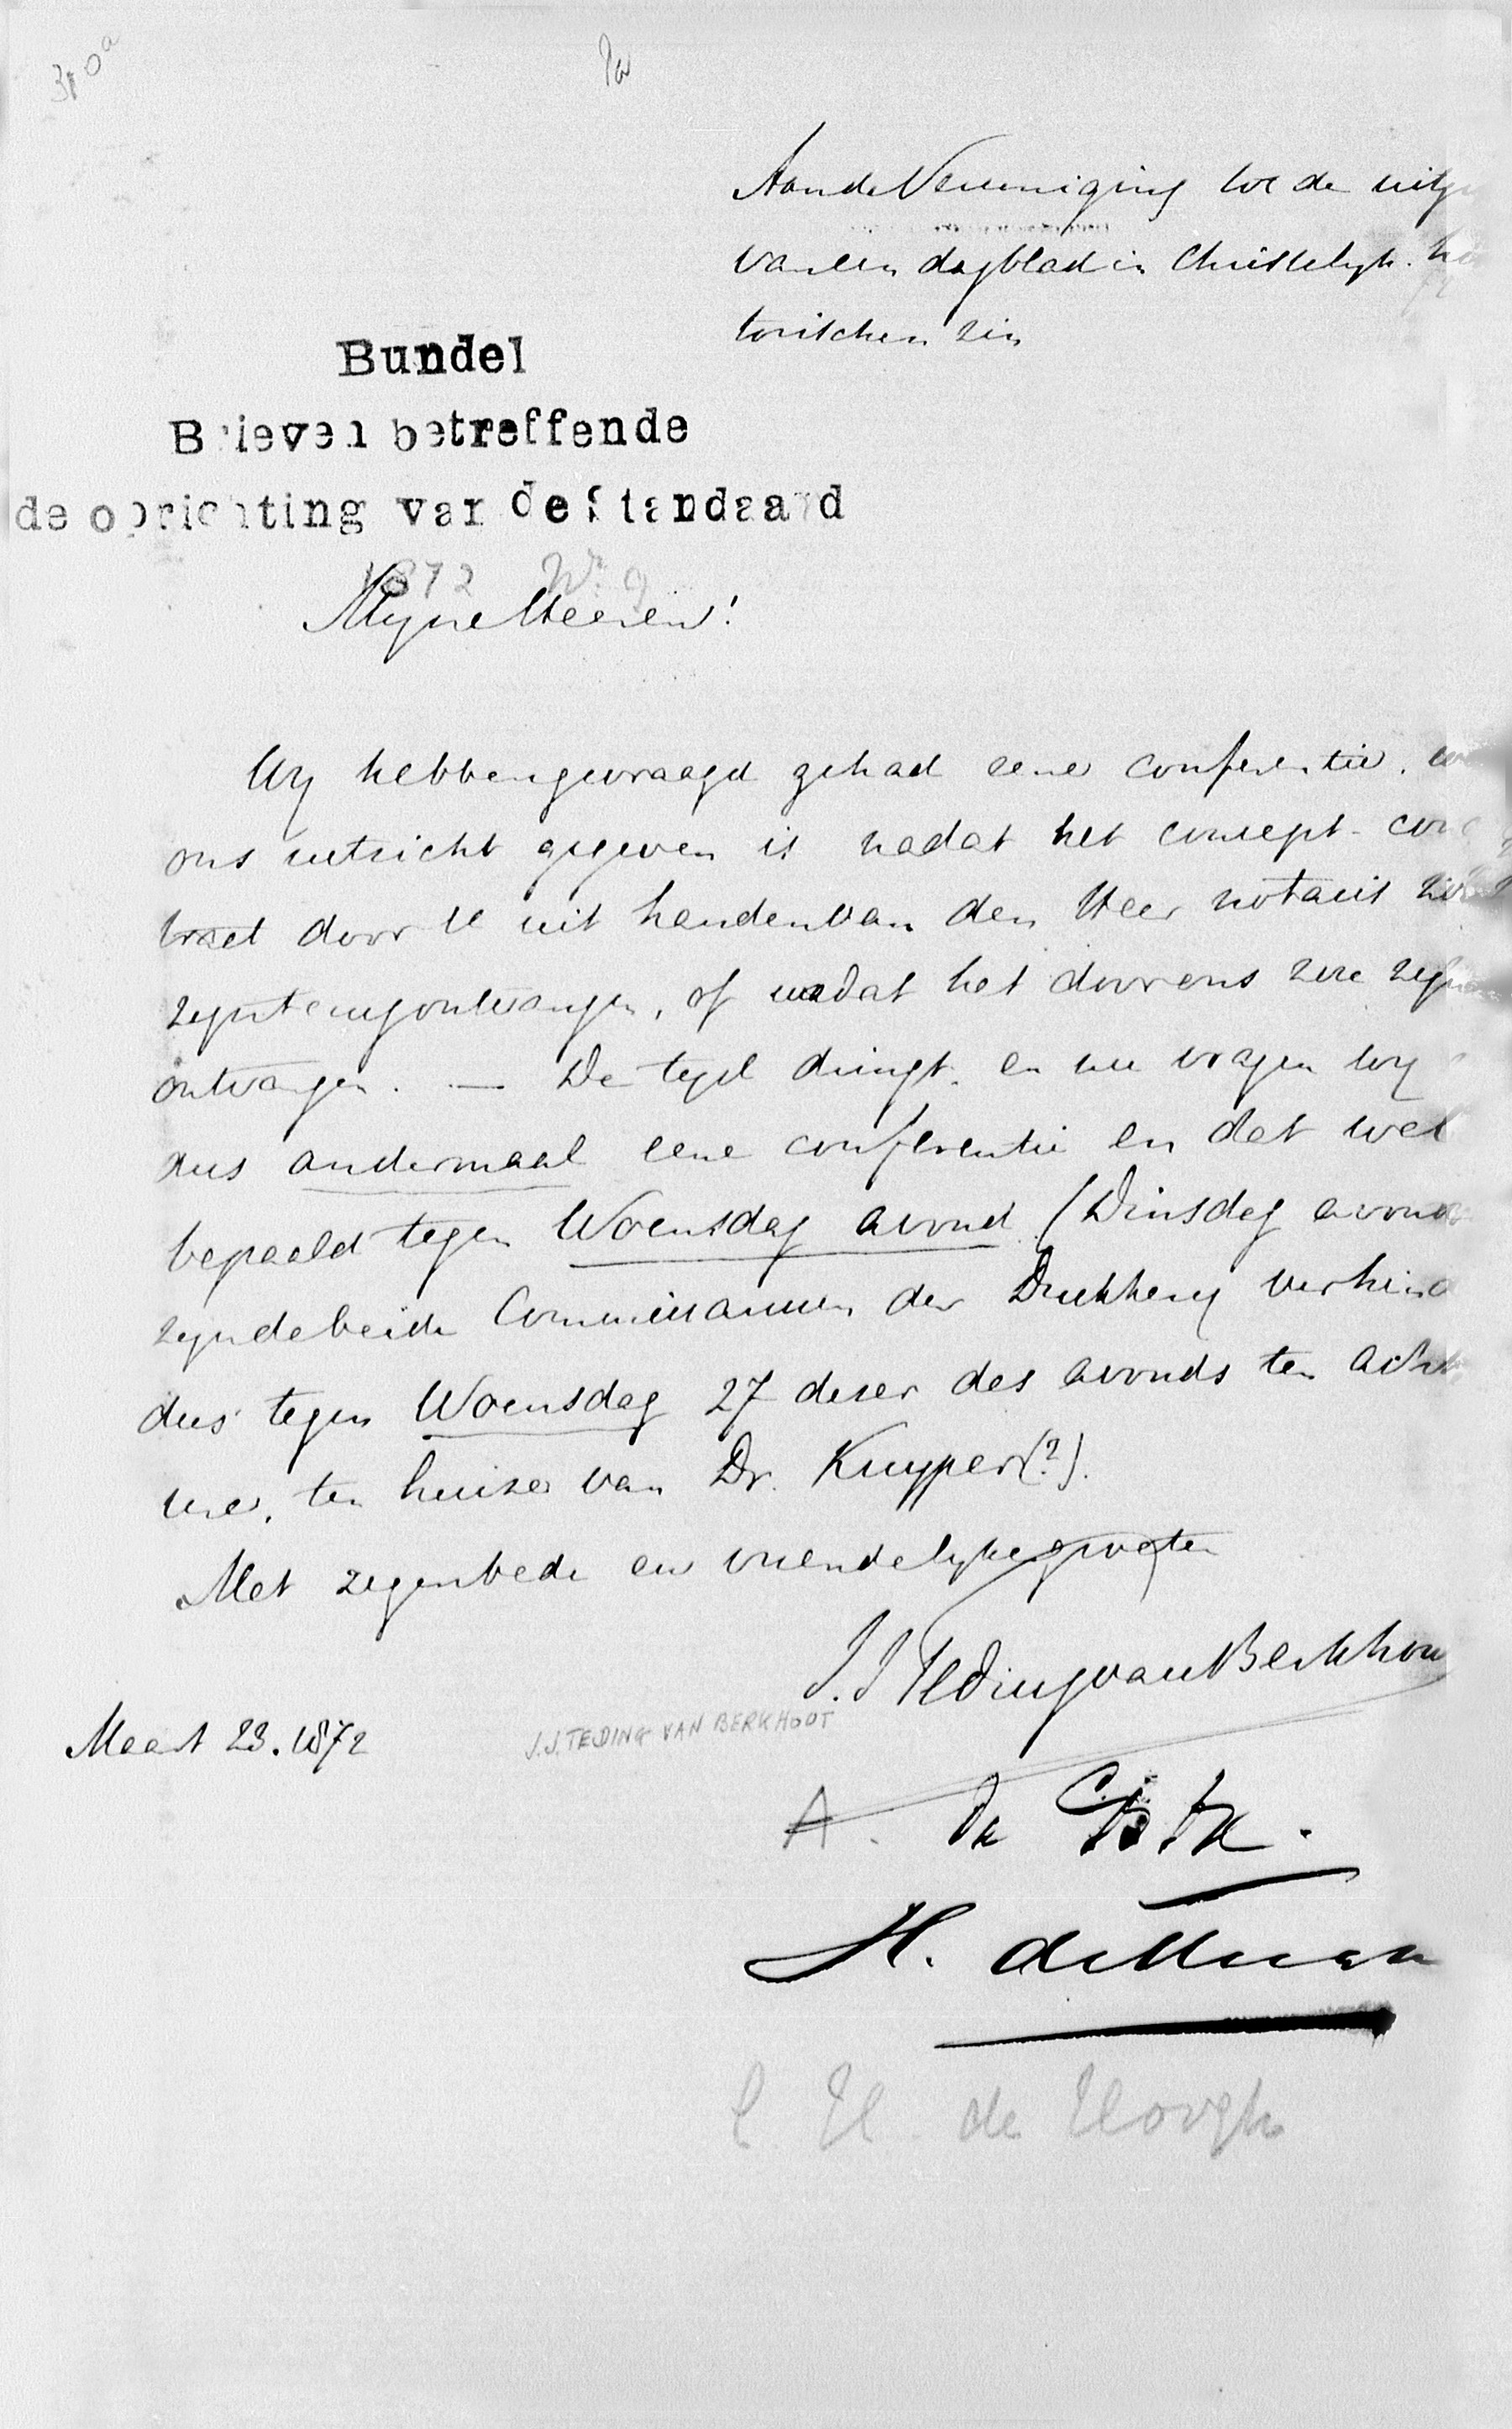 380a
Aan de Vereeniging tot de uitg
van een dagblad in Christelyk. his
torischen zin
Bundel
Brieven betreffende
de oprichting van de Standaard
1872 Nr. 9
Myne Heeren!
Wy hebben gevraagd gehad eene conferentie.
ons uitzicht gegeven is nadat het concept-con
tract door U uit handen van den Heer notaris
zyn ontvangen, of nadat het door ons zou zyn
ontvangen. — De tyd dringt. en nu vragen wy
dus andermaal eene conferentie en dat wel
bepaald tegen Woensdag avond (Dinsdag avond
zyn de beide Commissarissen der Drukkery verhind
dus tegen Woensdag 27 dezer des avonds ten acht
ure. ten huize van Dr. Kuyper(?).
Met zegenbede en vriendelyke groeten
J. J. Teding van Berkhou
Maart 23. 1872
J.J. TEDING VAN BERKHOUT
A. de
H. de
C. H. de Hoogh